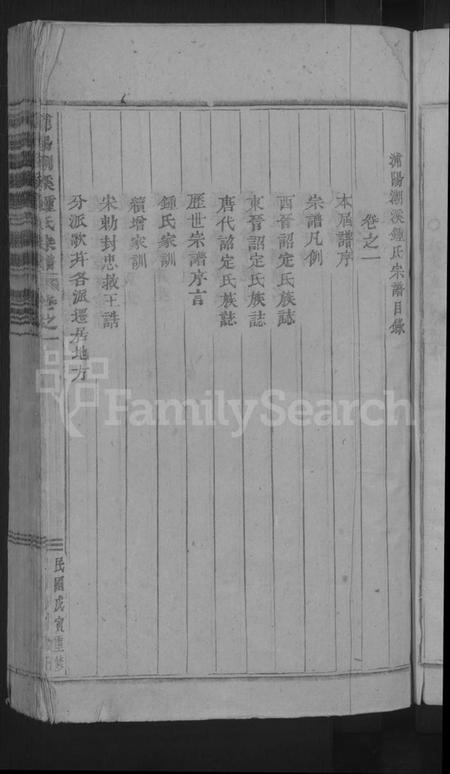 浦陽潮溪鍾氏宗譜目錄
卷之一
本屆譜序
宗譜凡例
西晉詔定氏族誌
東晉詔定氏族誌
唐代詔定氏族誌
歷世宗譜序言
鍾氏家訓
續增家訓
宋勅封忠救王誥
分派歌并各派遷居地方
浦陽潮溪鍾氏宗譜 卷之一
民國戊寅重修
FamilySearch